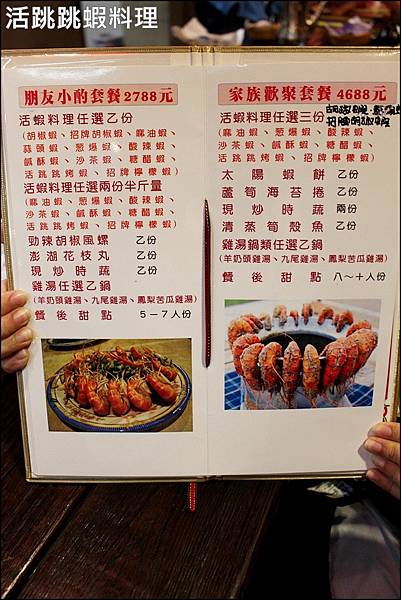 活跳跳蝦料理
朋友小酌套餐2788元
活蝦料理任選乙份
(胡椒蝦、招牌胡椒蝦、麻油蝦、
蒜頭蝦、蔥爆蝦、酸辣蝦、
鹹酥蝦、沙茶蝦、糖醋蝦、
活跳跳烤蝦、招牌檸檬蝦)
活蝦料理任選兩份半斤量
(麻油蝦、蔥爆蝦、酸辣蝦、
沙茶蝦、鹹酥蝦、糖醋蝦、
活跳跳烤蝦、招牌檸檬蝦)
勁辣胡椒風螺 乙份
澎湖花枝丸 乙份
現炒時蔬 乙份
雞湯任選乙鍋
(羊奶頭雞湯、九尾雞湯、鳳梨苦瓜雞湯)
餐後甜點 5－7人份
家族歡聚套餐4688元
活蝦料理任選三份
(麻油蝦、蔥爆蝦、酸辣蝦、
沙茶蝦、鹹酥蝦、糖醋蝦、
活跳跳烤蝦、招牌檸檬蝦)
太陽蝦餅 乙份
蘆筍海苔捲 乙份
現炒時蔬 兩份
清蒸筍殼魚 乙份
雞湯鍋類任選乙鍋
(羊奶頭雞湯、九尾雞湯、鳳梨苦瓜雞湯)
餐後甜點 八～十人份